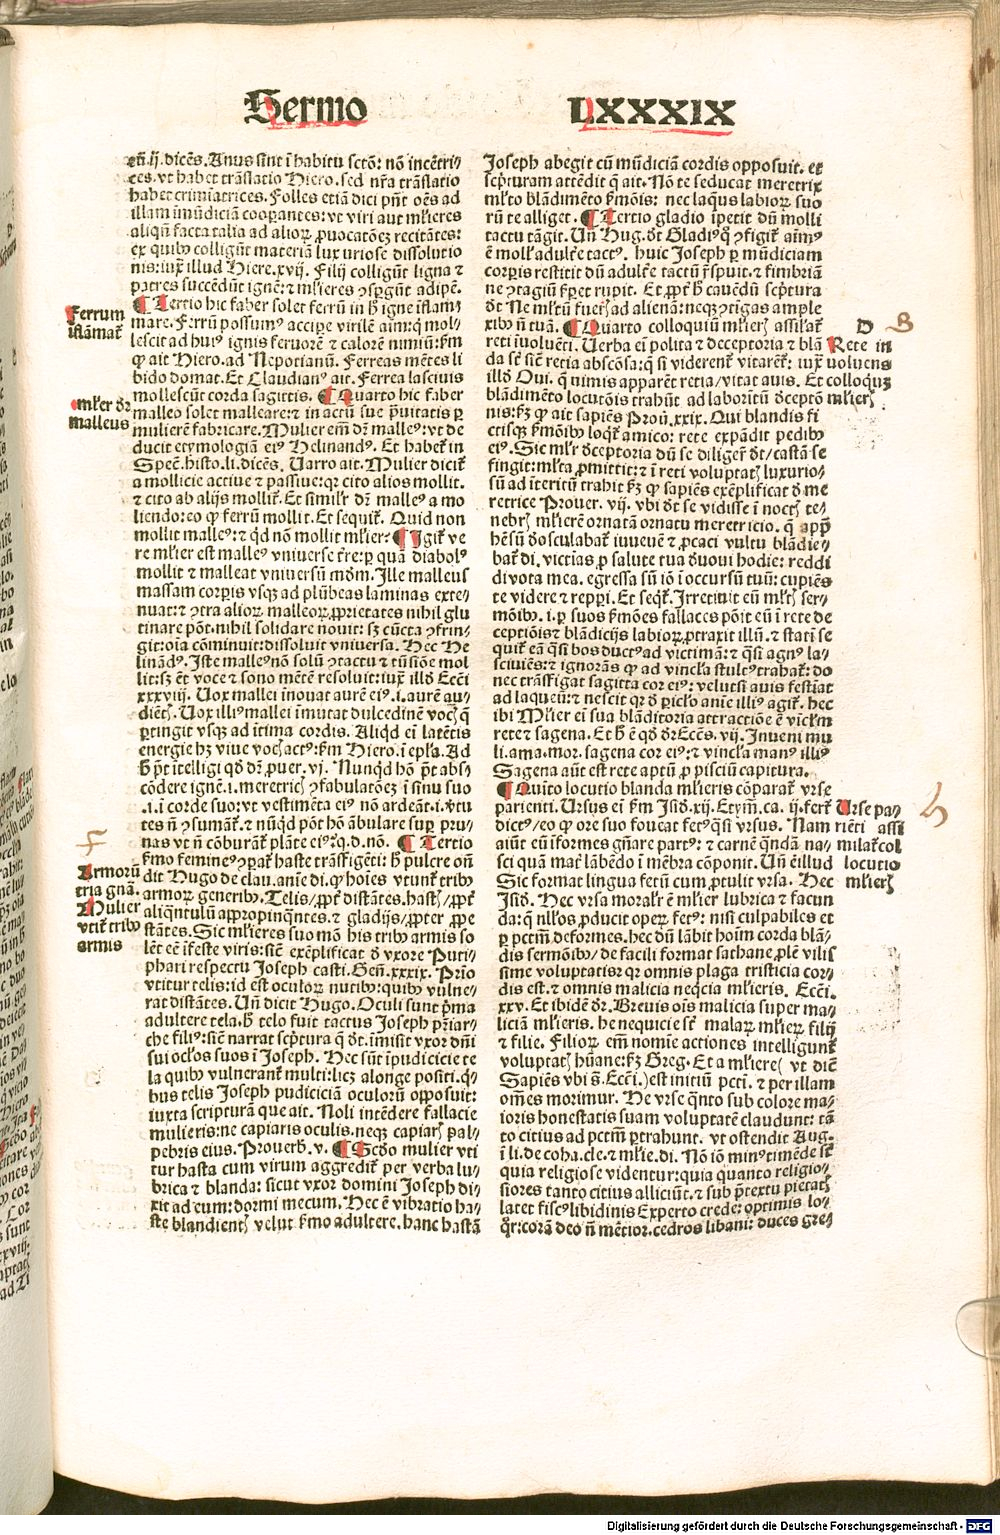 Sermo LXXXIX
eñ.ij.dicẽs. Anus sint ĩ habitu sctõ: nõ incẽtri⸗
ces. vt habet trãslatio Hiero. sed nr̃a trãslatio
habet crimĩatrices. Folles etiã dici pñt oẽs ad
illam ĩmũdiciã cooꝑantes: vt viri aut ml̃ieres
aliqñ facta talia ad alioꝝ ꝓuocatõeꝫ recitãtes:
ex quibꝰ colligũt materiã luxuriose dissolutio
nis: iux̃ illud Hiere. xvij. Filij colligũt ligna ⁊
patres succẽdũt ignẽ: ⁊ ml̃ieres ꝯspergũt adipẽ.
¶ Tertio hic faber solet ferrũ in h̃ igne ĩflam⸗
mare. Ferrũ possumꝰ accipe virilẽ aĩm: q̃ mol⸗
lescit ad huiꝰ ignis feruorẽ ⁊ calorẽ nimiũ: ẜm
ꝙ ait Hiero. ad Nepotianũ. Ferreas mẽtes li
bido domat. Et Claudianꝰ ait. Ferrea lasciuis
mollescũt corda sagittis. ¶ Quarto hic faber
malleo solet malleare: ⁊ in actũ sue p̃uitatis ꝑ
mulierẽ fabricare. Mulier em̃ dr̃ malleꝰ: vt de
ducit etymologiã eiꝰ Helinandꝰ. Et habet̃ in
Specl̃. histo. li. dicẽs. Uarro ait. Mulier dicit̃
a mollicie actiue ⁊ passiue: qꝛ cito alios mollit.
⁊ cito ab alijs mollit̃. Et simil̃r dr̃ malleꝰ a mo
liendo: eo ꝙ ferrũ mollit. Et sequit̃. Quid non
mollit malleꝰ: ⁊ qͥd nõ mollit ml̃ier? ¶ Igit̃ ve
re ml̃ier est malleꝰ vniuerse tr̃e: ꝑ quã diabolꝰ
mollit ⁊ malleat vniuersũ mũdm̃. Ille malleus
massam corꝑis vsqꝫ ad plũbeas laminas exte⸗
nuat: ⁊ ꝯtra alioꝝ malleoꝝ ꝓprietates nihil glu
tinare põt. nihil solidare nouit: sꝫ cũcta ꝯfrin⸗
git: oĩa cõminuit: dissoluit vniuersa. Hec He
linãdꝰ. Iste malleꝰ nõ solũ ꝯtactu ⁊ tũsiõe mol
lit: sꝫ ẽt voce ⁊ sono mẽtẽ resoluit: iux̃ illd̃ Ecc̃i
xxxviij. Uox mallei ĩnouat aurẽ eiꝰ. i. aurẽ au⸗
diẽtꝭ. Uox illiꝰ mallei ĩmutat dulcedinẽ vocꝭ q̃
ꝑtingit vsqꝫ ad ĩtima cordis. Aliqͥd eĩ latẽtis
energie hꝫ viue vocꝭ actꝰ: ẜm Hiero. ĩ epl̃a. Ad
h̃ pt̃ ĩtelligi qd̃ dr̃ ꝓuer. vj. Nunqͥd hõ pt̃ abs⸗
cõdere ignẽ. i. meretricꝭ ꝯfabulatõeꝫ ĩ sinu suo
.i. ĩ corde suo: vt vestimẽta eiꝰ nõ ardeãt. i. vtu
tes ñ ꝯsumãt̃. ⁊ nũqͥd põt hõ ãbulare suꝑ pru⸗
nas vt ñ cõburãt̃ plãte eiꝰ: q.d. nõ. ¶ Tertio
ẜmo feminẽꝰ ꝯꝑat̃ haste trãsfigẽti: h̃ pulcre oñ
dit Hugo de clau. anĩe di. ꝙ hoĩes vtunt̃ tribꝰ
armoꝝ generibꝰ. Telis, ꝓpt̃ distãtes. hastꝭ, ꝓpt̃
aliq̃ntulũ aꝓpinqͣntes. ⁊ gladijs, ꝓpter ꝓpe
stãtes. Sic ml̃ieres suo mõ his tribꝰ armis so
lẽt eẽ ĩfeste viris: siẽ exẽplificat̃ d̃ vxore Puti⸗
phari respectu Joseph casti. Geñ. xxxix. Pr̃io
vtitur telis: id est oculoꝝ nutibꝰ: quibꝰ vulne⸗
rat distãtes. Uñ dicit Hugo. Oculi sunt p̃ma
adultere tela. h̃ telo fuit tactus Joseph pr̃iar⸗
che filiꝰ: siẽ narrat scp̃tura q̃ dt̃. ĩmisit vxor dñi
sui ocl̃os suos ĩ Joseph. Hec sũt ĩpudicicie te
la quibꝰ vulnerant̃ multi: licꝫ alonge positi. q̃⸗
bus telis Joseph pudiciciã oculorũ opposuit:
iuxta scripturã que ait. Noli intẽdere fallacie
mulieris: ne capiaris oculis. neqꝫ capiarꝭ pal⸗
pebris eius. Prouerb̃. v. ¶ Scd̃o mulier vti
tur hasta cum virum aggredit̃ per verba lu⸗
brica ⁊ blanda: sicut vxor domini Joseph di⸗
xit ad eum: dormi mecum. Hec ẽ vibratio ha⸗
ste blandientꝭ velut ẜmo adultere. hanc hastã
Ferrum
ĩflãmat̃
ml̃ier dr̃
malleus
F
Armorũ
tria gñã.
Mulier
vtit̃ tribꝰ
armis
Joseph abegit cũ mũdiciã cordis opposuit. et
scp̃turam attẽdit q̃ ait. Nõ te seducat meretrix
ml̃to blãdimẽto ẜmõis: nec laqͥus labioꝝ suo
rũ te alliget. ¶ Tertio gladio ĩpetit dñ molli
tactu tãgit. Uñ Hug. dt̃ Gladiꝰ q̃ ꝯfigit̃ aĩmꝰ
ẽ moll̃ adult̃e tactꝰ. huic Joseph ꝑ mũdiciam
corꝑis restitit dũ adult̃e tactũ r̃spuit. ⁊ fimbriã
ne ꝯtagiũ fr̃et rupit. Et ꝓpt̃ h̃ cauẽdũ scp̃tura
dt̃ Ne ml̃tũ fuer̃ ad alienã: neqꝫ ꝯtigas ample
xibꝰ ñ tuã. ¶ Quarto colloquiũ ml̃ierꝭ assil̃at̃
reti ĩuoluẽti. Uerba eĩ polita ⁊ deceptoria ⁊ blã
da sẽ siẽ retia abscõsa: q̃ si viderent̃ vitarẽt̃: iux̃
illd̃ Oui. q̃ nimis apparẽt retia, vitat auis. Et
blãdimẽto locutõis trahũt ad laboritũ dceptõ
nis: ẜm ꝙ ait sapiẽs Prou. xxix. Qui blandis fi
ctisqꝫ ẜmõibꝰ loqͥt̃ amico: rete expãdit pedibꝰ
eiꝰ. Sic ml̃r dceptoria dũ se diliger̃ dt̃, castã se
fingit: ml̃ta ꝓmittit: ⁊ ĩ reti voluptatꝭ luxurio⸗
sũ ad ĩteritũ trahit ẜꝫ ꝙ sapiẽs exẽplificat d̃ me
retrice Prouer. vij. vbi dt̃ se vidisse ĩ noctꝭ te⸗
nebrꝭ ml̃ierẽ ornatã ornatu meretricio. q̃ app̃
hẽsũ dosculabat̃ iuuenẽ ⁊ ꝓcaci vultu blãdie⸗
bat̃ di. victĩas ꝓ salute tua dvoui hodie: reddi
di vota mea. egressa sũ iõ ĩ occursũ tuũ: cupiẽs
te videre ⁊ reꝑi. Et seqͥt̃. Irretiuit eũ ml̃tꝭ ser⸗
mõibꝰ. i. ꝑ suos ẜmões fallaces põit eũ ĩ rete de
ceptiõis ⁊ blãdicijs labioꝝ ꝓtraxit illũ. ⁊ statĩ se
quit̃ eã q̃si bos ductꝰ ad victimã: ⁊ q̃si agnꝰ la⸗
sciuiẽs: ⁊ ignorãs ꝙ ad vincl̃a stultꝰ trahat̃: do
nec trãsfigat sagitta cor eiꝰ: velut si auis festĩat
ad laqueũ: ⁊ nescit qꝛ d̃ ꝑicl̃o anĩe illiꝰ agit̃. hec
ibi Ml̃ier eĩ sua blãditoria attractiõe ẽ vĩcl̃m
rete ⁊ sagena. Et h̃ ẽ qd̃ dr̃ Ecc̃s. vij. Inueni mu
li. ama. mor. sagena cor eiꝰ: ⁊ vincl̃a manꝰ illiꝰ
Sagena aũt est rete aptũ ꝓ pisciũ capitura.
¶ Quĩto locutio blanda ml̃ieris cõparat̃ vrse
parienti. Ursus eĩ ẜm Isid̃. xij. Etym̃. ca. ij. fert̃
dictꝰ, eo ꝙ ore suo foueat fetꝰ q̃si vrsus. Nam
aiũt eũ ĩformes gñare partꝰ: ⁊ carnẽ qͣndã na⸗
sci quã mat̃ lãbẽdo ĩ mẽbra cõponit. Uñ ẽ illud
Sic format lingua fetũ cum ꝓtulit vrsa. Hec
Isid̃. Hec vrsa moral̃r ẽ ml̃ier lubrica ⁊ facun
da: q̃ nll̃os ꝓducit opeꝝ fetꝰ: nisi culpabiles et
ꝑ pctm̃ deformes. hec dũ lãbit hoĩm corda blã⸗
dis sermõibꝰ, de facili format sathane ꝓlẽ vilis
sime voluptatis: qꝛ omnis plaga tristicia cor⸗
dis est. ⁊ omnis malicia neqͥcia ml̃ieris. Ecc̃i.
xxv. Et ibidẽ dr̃. Breuis oĩs malicia super ma⸗
liciã ml̃ieris. he nequicie st̃ malaꝝ ml̃ieꝝ filij
⁊ filie. Filioꝝ em̃ nomie actiones intelligunt̃
voluptatꝭ hũane: ẜꝫ Greg. Et a ml̃iere( vt dic̃
Sapiẽs vbi s̃. Ecc̃i.) est initiũ pcti. ⁊ per illam
oẽs morimur. He vrse q̃nto sub colore ma⸗
ioris honestatis suam voluptatẽ claudunt: tã
to citius ad pctm̃ ꝑtrahunt. vt ostendit Aug.
ĩ li. de coha. cle. ⁊ ml̃ie. di. Nõ iõ minꝰ timẽde st̃
quia religiose videntur: quia quanto religio⸗
siores tanto citius alliciũt. ⁊ sub p̃textu pietatꝭ
latet fiscꝰ libidinis Experto crede: optimis lo⸗
qͦr: corã deo ñ mẽtior. cedros libani: duces gre⸗
D B
Rete in
uoluens
colloquꝫ
ml̃ierꝭ.
h
Urse pa⸗
riẽti assi
milat̃ col
locutio
ml̃ierꝭ
Digitalisierung gefördert durch die Deutsche Forschungsgemeinschaft - DFG